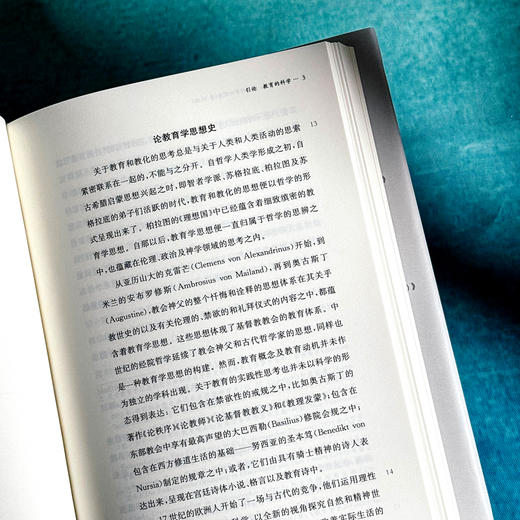 引论 教育的科学 — 3
论教育学思想史
13
关于教育和教化的思考总是与关于人类和人类活动的思索
紧密联系在一起的,不能与之分开。自哲学人类学形成之初,自
古希腊启蒙思想兴起之时,即智者学派、苏格拉底、柏拉图及苏
格拉底的弟子们活跃的时代,教育和教化的思想便以哲学的形
式呈现出来了。柏拉图的《理想国》中已经蕴含着细致缜密的教
育学思想。自那以后,教育学思想便一直归属于哲学的思辨之
中,也蕴藏在伦理、政治及神学领域的思考之内。
从亚历山大的克雷芒(Clemens von Alexandrinus)开始,到
米兰的安布罗修斯(Ambrosius von Mailand),再到奥古斯丁
(Augustine),教会神父的整个忏悔和诠释的思想体系在其关乎
救世史的以及有关伦理的、禁欲的和礼拜仪式的内容之中,都蕴
含着教育学思想。这些思想体现了基督教教会的教育体系。中
世纪的经院哲学延续了教会神父和古代哲学家的思想,同样也
是一种教育学思想的构建。然而,教育概念及教育动机并未作
为独立的学科出现。关于教育的实践性思考也并未以科学的形
态得到表达:它们包含在禁欲性的戒规之中,比如奥古斯丁的
著作《论秩序》《论教师》《论基督教教义》和《教理发蒙》;包含在
东部教会中享有最高声望的大巴西勒(Basilius)修院会规之中;
包含在西方修道生活的基础——努西亚的圣本笃(Benedikt von
Nursia)制定的规章之中;或者,它们由具有骑士精神的诗人表
达出来,呈现在宫廷诗体小说、格言以及教育诗中。
14
17世纪的欧洲人开始了一场与古代的竞争,他们运用理性
科学,以全新的视角探究自然和精神世
善实际生活的